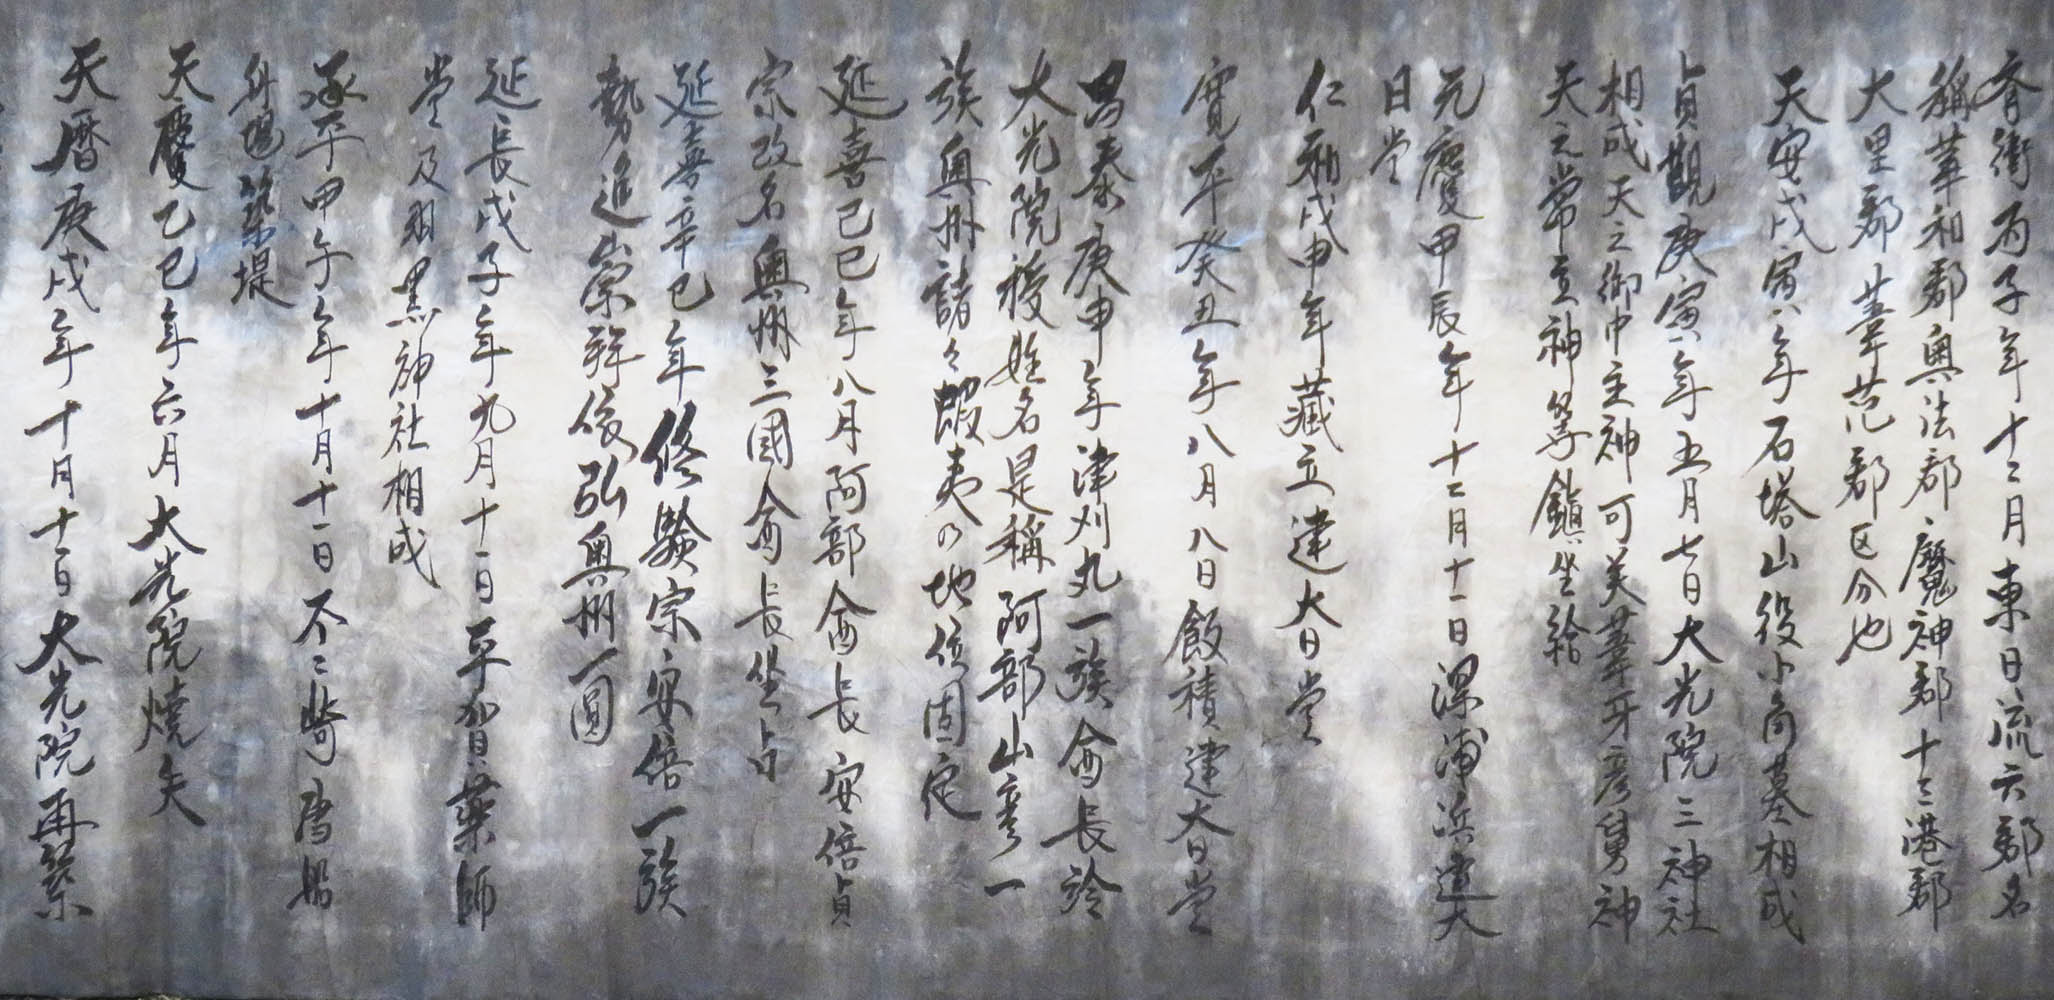 斉衡丙子年十二月東日流六郡名
稱華和郡奥法郡魔神郡十三港郡
大里郡華范郡区分也
天安戊寅年石塔山役小角墓相成
貞觀庚寅年五月七日大光院三神社
相成天之御中主神可美葦牙彦舅神
天之常立神等鎮坐給
元慶甲辰年十二月十一日深浦浜建大
日堂
仁和戊申年藏立建大日堂
寛平癸丑年八月八日飯積建大日堂
昌泰庚申年津刈丸一族酋長
大光院授姓名是稱阿部山 一
族奥州諸々蝦夷の地位固定
延喜己巳年八月阿部酋長安倍貞
宗改名奥州三國酋長坐占
延喜辛巳年修験宗安倍一族
勢進崇拝後弘奥州一圓
延長戊子年九月十一日平賀薬師
堂及羽黒神社相成
承平甲午年十月十一日不二崎唐船
舟場築堤
天慶乙巳年六月大光院焼失
天暦庚戌年十月十一日大光院再築